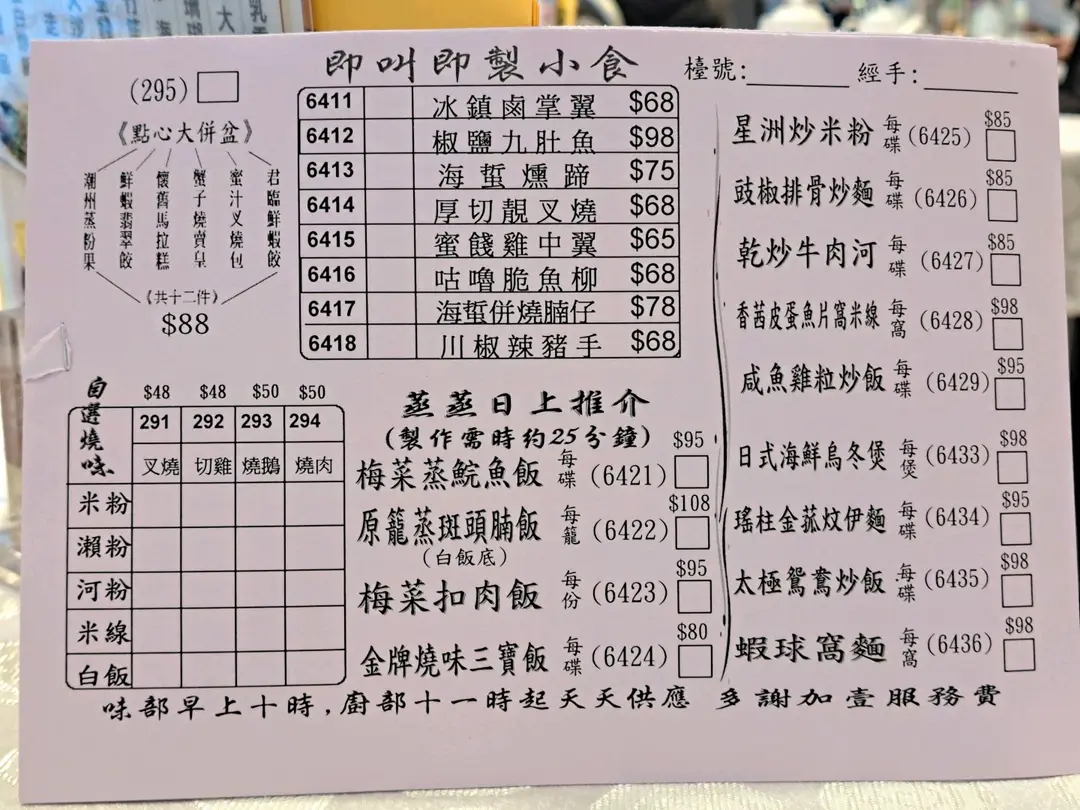 即叫即製小食
檯號:
經手:
(295)
《點心大併盆》
潮州蒸粉果
鮮蝦翡翠餃
懷舊馬拉糕
蟹子燒賣皇
蜜汁叉燒包
君臨鮮蝦餃
《共十二件》
$88
6411 冰鎮鹵掌翼 $68
6412 椒鹽九肚魚 $98
6413 海蜇燻蹄 $75
6414 厚切靚叉燒 $68
6415 蜜餞雞中翼 $65
6416 咕嚕脆魚柳 $68
6417 海蜇併燒腩仔 $78
6418 川椒辣豬手 $68
自選燒味
$48 $48 $50 $50
291 292 293 294
叉燒 切雞 燒鵝 燒肉
米粉
瀨粉
河粉
米線
白飯
蒸蒸日上推介
(製作需時約25分鐘)
梅菜蒸鯇魚飯 每碟 (6421) $95
原籠蒸斑頭腩飯 每籠 (6422) $108
(白飯底)
梅菜扣肉飯 每份 (6423) $95
金牌燒味三寶飯 每碟 (6424) $80
星洲炒米粉 每碟 (6425) $85
豉椒排骨炒麵 每碟 (6426) $85
乾炒牛肉河 每碟 (6427) $85
香茜皮蛋魚片窩米線 每窩 (6428) $98
咸魚雞粒炒飯 每碟 (6429) $95
日式海鮮烏冬煲 每煲 (6433) $98
瑤柱金菰炆伊麵 每碟 (6434) $95
太極鴛鴦炒飯 每碟 (6435) $98
蝦球窩麵 每窩 (6436) $98
味部早上十時,廚部十一時起天天供應 多謝加壹服務費